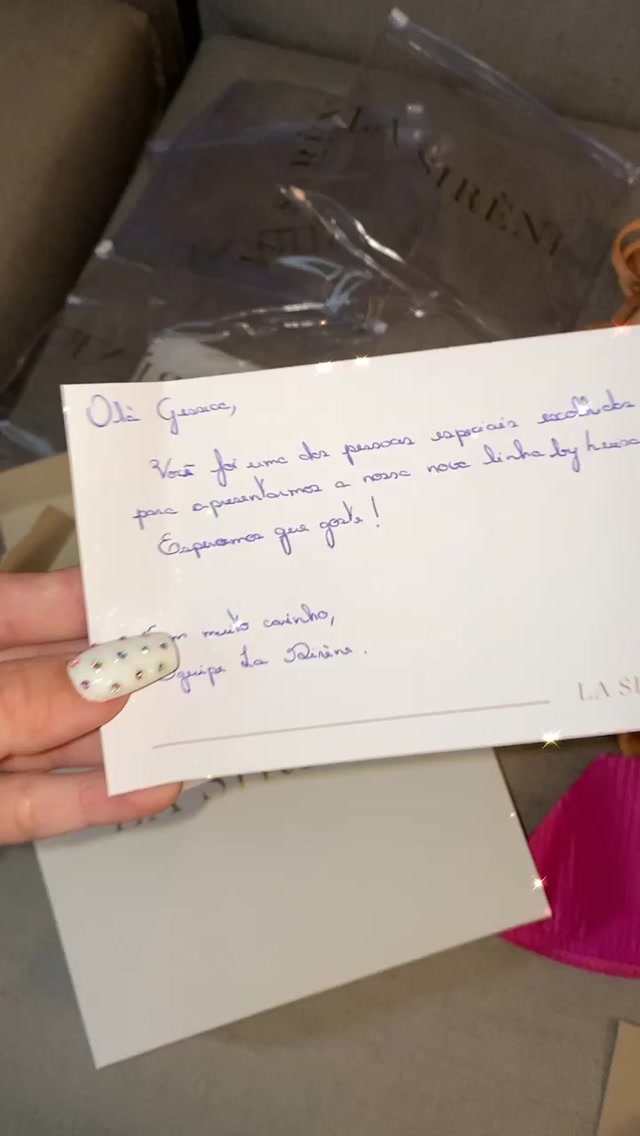 LA SIRÈN
Olá Gessica,
Você foi uma das pessoas especiais escolhidas
para apresentarmos a nossa nova linha by
Esperamos que goste!
muito carinho,
Equipe La Sirène.
LA SI
LA SIR